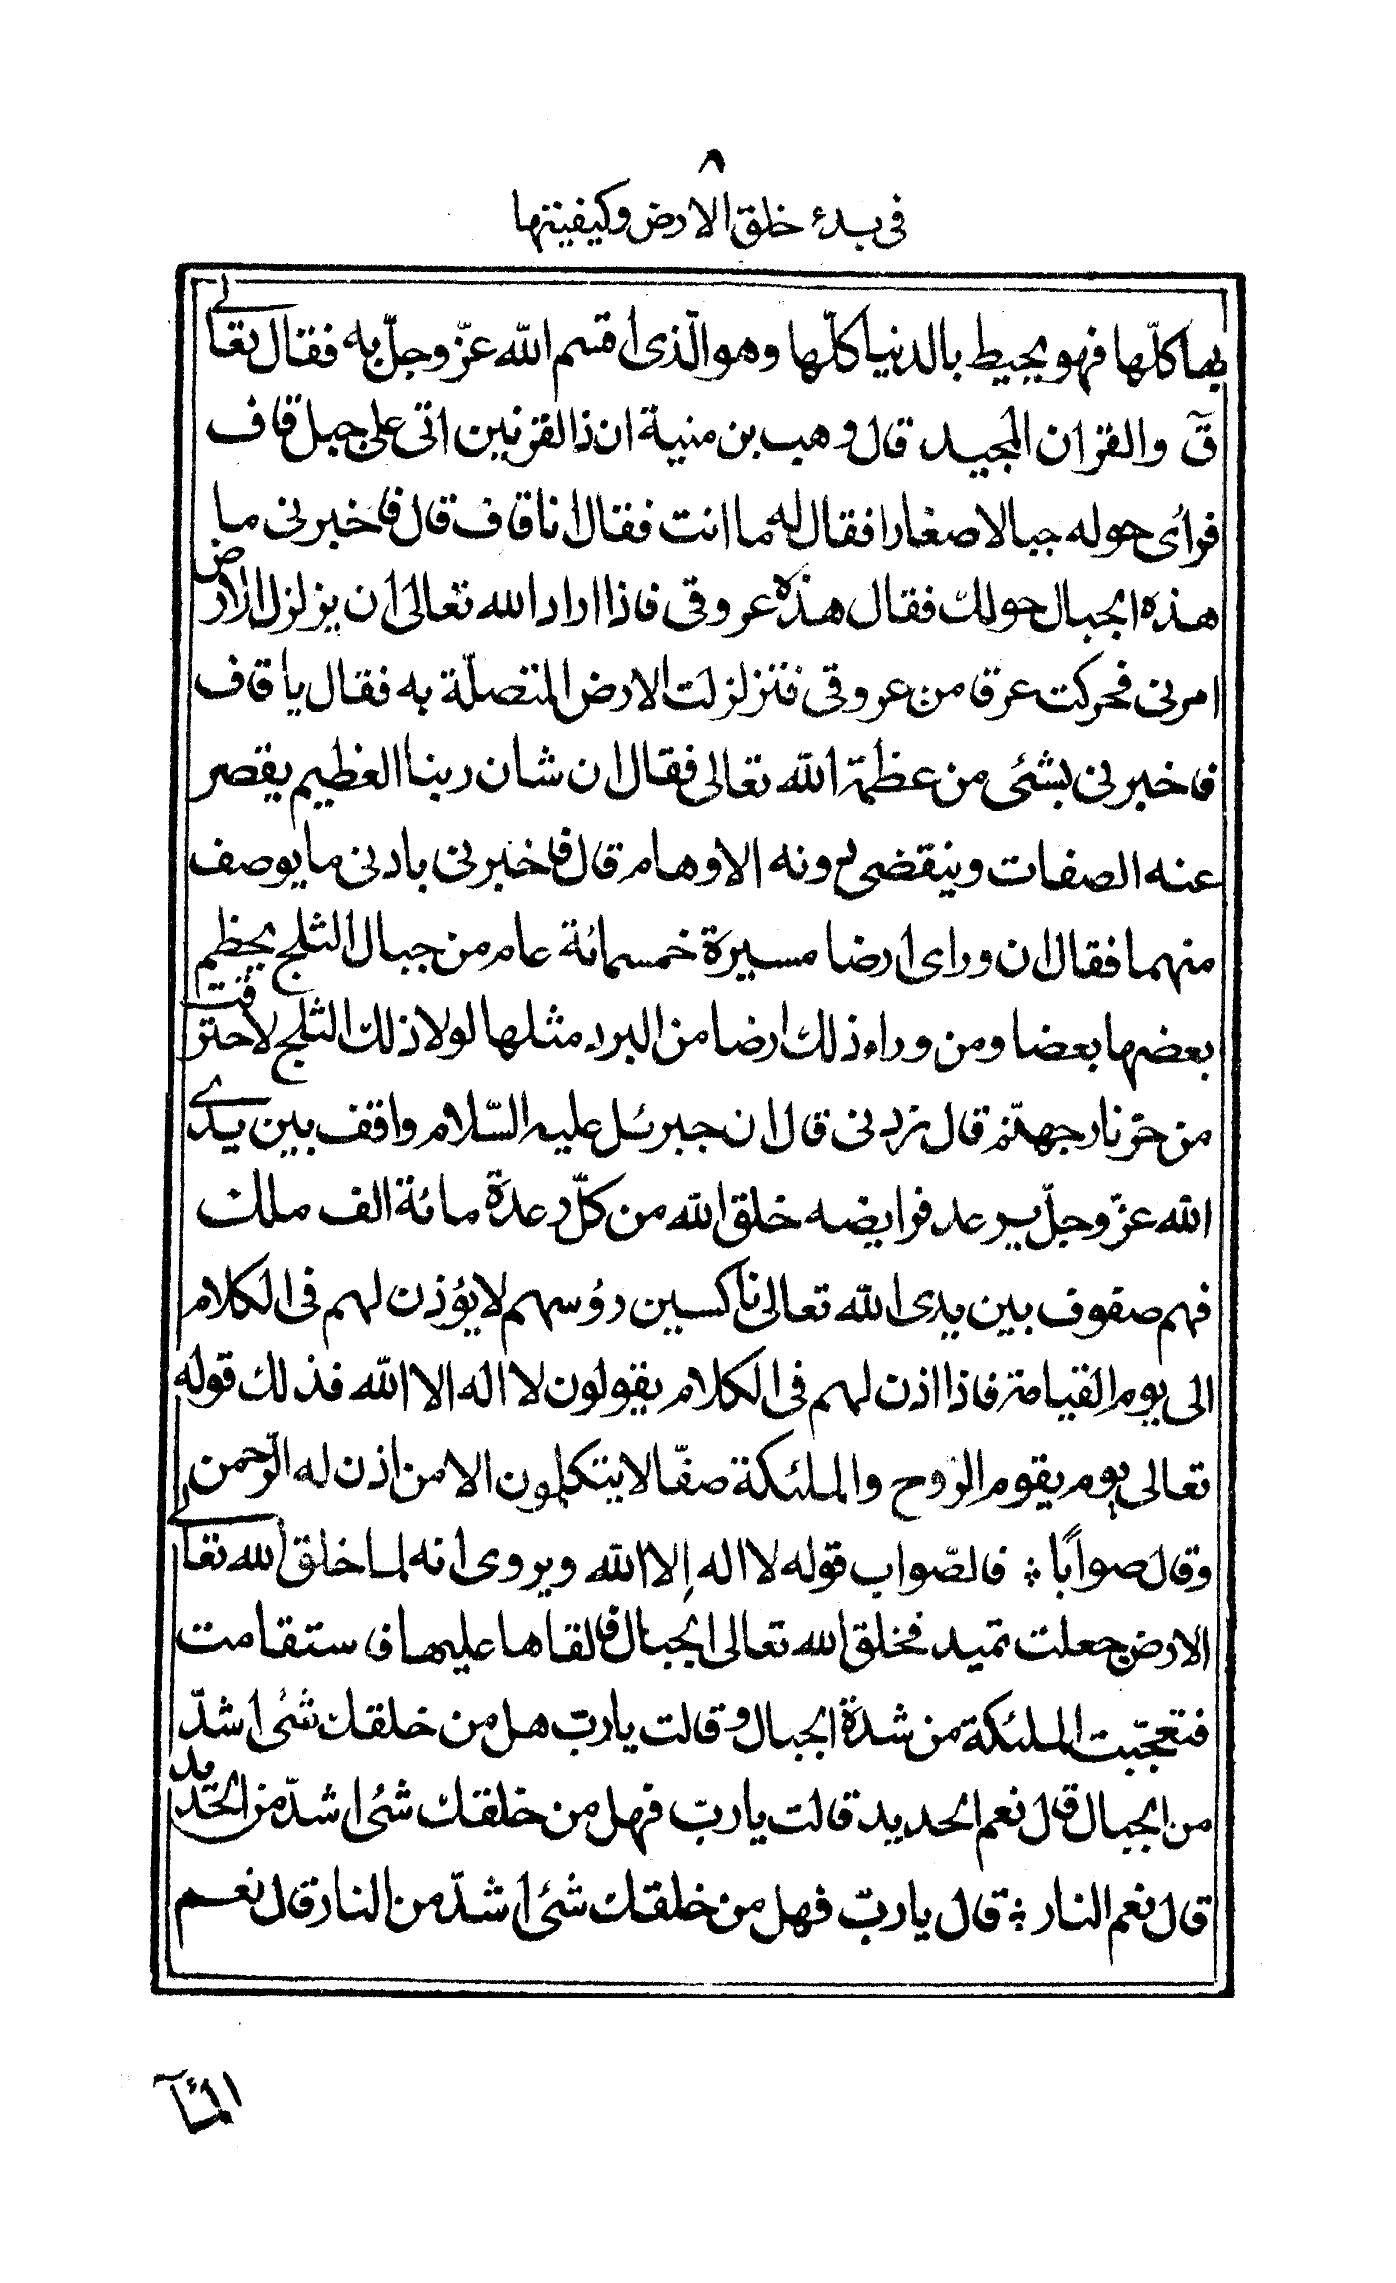 ٨
فى بدء خلق الارض وكيفيتها
بها كلّها فهو يحيط بالدنيا كلّها وهو الّذى اقسم الله عزّ وجلّ به فقال تعالى
قٓ والقران المجيد قال وهب بن منبه ان ذا القرنين اتى على جبل قاف
فرأى حوله جبالا صغارا فقال له ما انت فقال انا قاف قال فاخبرنى ما
هذه الجبال حولك فقال هذه عروقى فاذا اراد الله تعالى ان يزلزل الارض
امرنى فحركت عرقا من عروقى فتزلزلت الارض المتصلّة به فقال يا قاف
فاخبرنى بشئى من عظمة الله تعالى فقال ان شان ربنا العظيم يقصر
عنه الصفات وينقضى دونه الاوهام قال فاخبرنى بادنى ما يوصف
منهما فقال ان وراى ارضا مسيرة خمسمائة عام من جبال الثلج يحطم
بعضها بعضا ومن وراء ذلك ارضا من البرد مثلها لولا ذلك الثلج لاحترقت
من حرّ نار جهنّم قال زدنى قال ان جبرئل عليه السّلام واقف بين يدى
الله عزّ وجلّ يرعد فرايضه خلق الله من كلّ رعدة مائة الف ملك
فهم صفوف بين يدى الله تعالى ناكسين رؤسهم لا يؤذن لهم فى الكلام
الى يوم القيامة فاذا اذن لهم فى الكلام يقولون لا اله الا الله فذلك قوله
تعالى يوم يقوم الرّوح والملئكة صفّا لا يتكلمون الا من اذن له الرّحمن
وقال صوابًا ؞ فالصّواب قوله لا اله إلا الله ويروى انه لما خلق الله تعالى
الارض جعلت تميد فخلق الله تعالى الجبال فالقاها عليها فاستقامت
فتعجّبت الملئكة من شدة الجبال وقالت يا ربّ هل من خلقك شئ اشدّ
من الجبال قال نعم الحديد قالت يا ربّ فهل من خلقك شئ اشدّ من الحديد
قال نعم النار ؞ قال يا ربّ فهل من خلقك شئ اشدّ من النار قال نعم
المآء